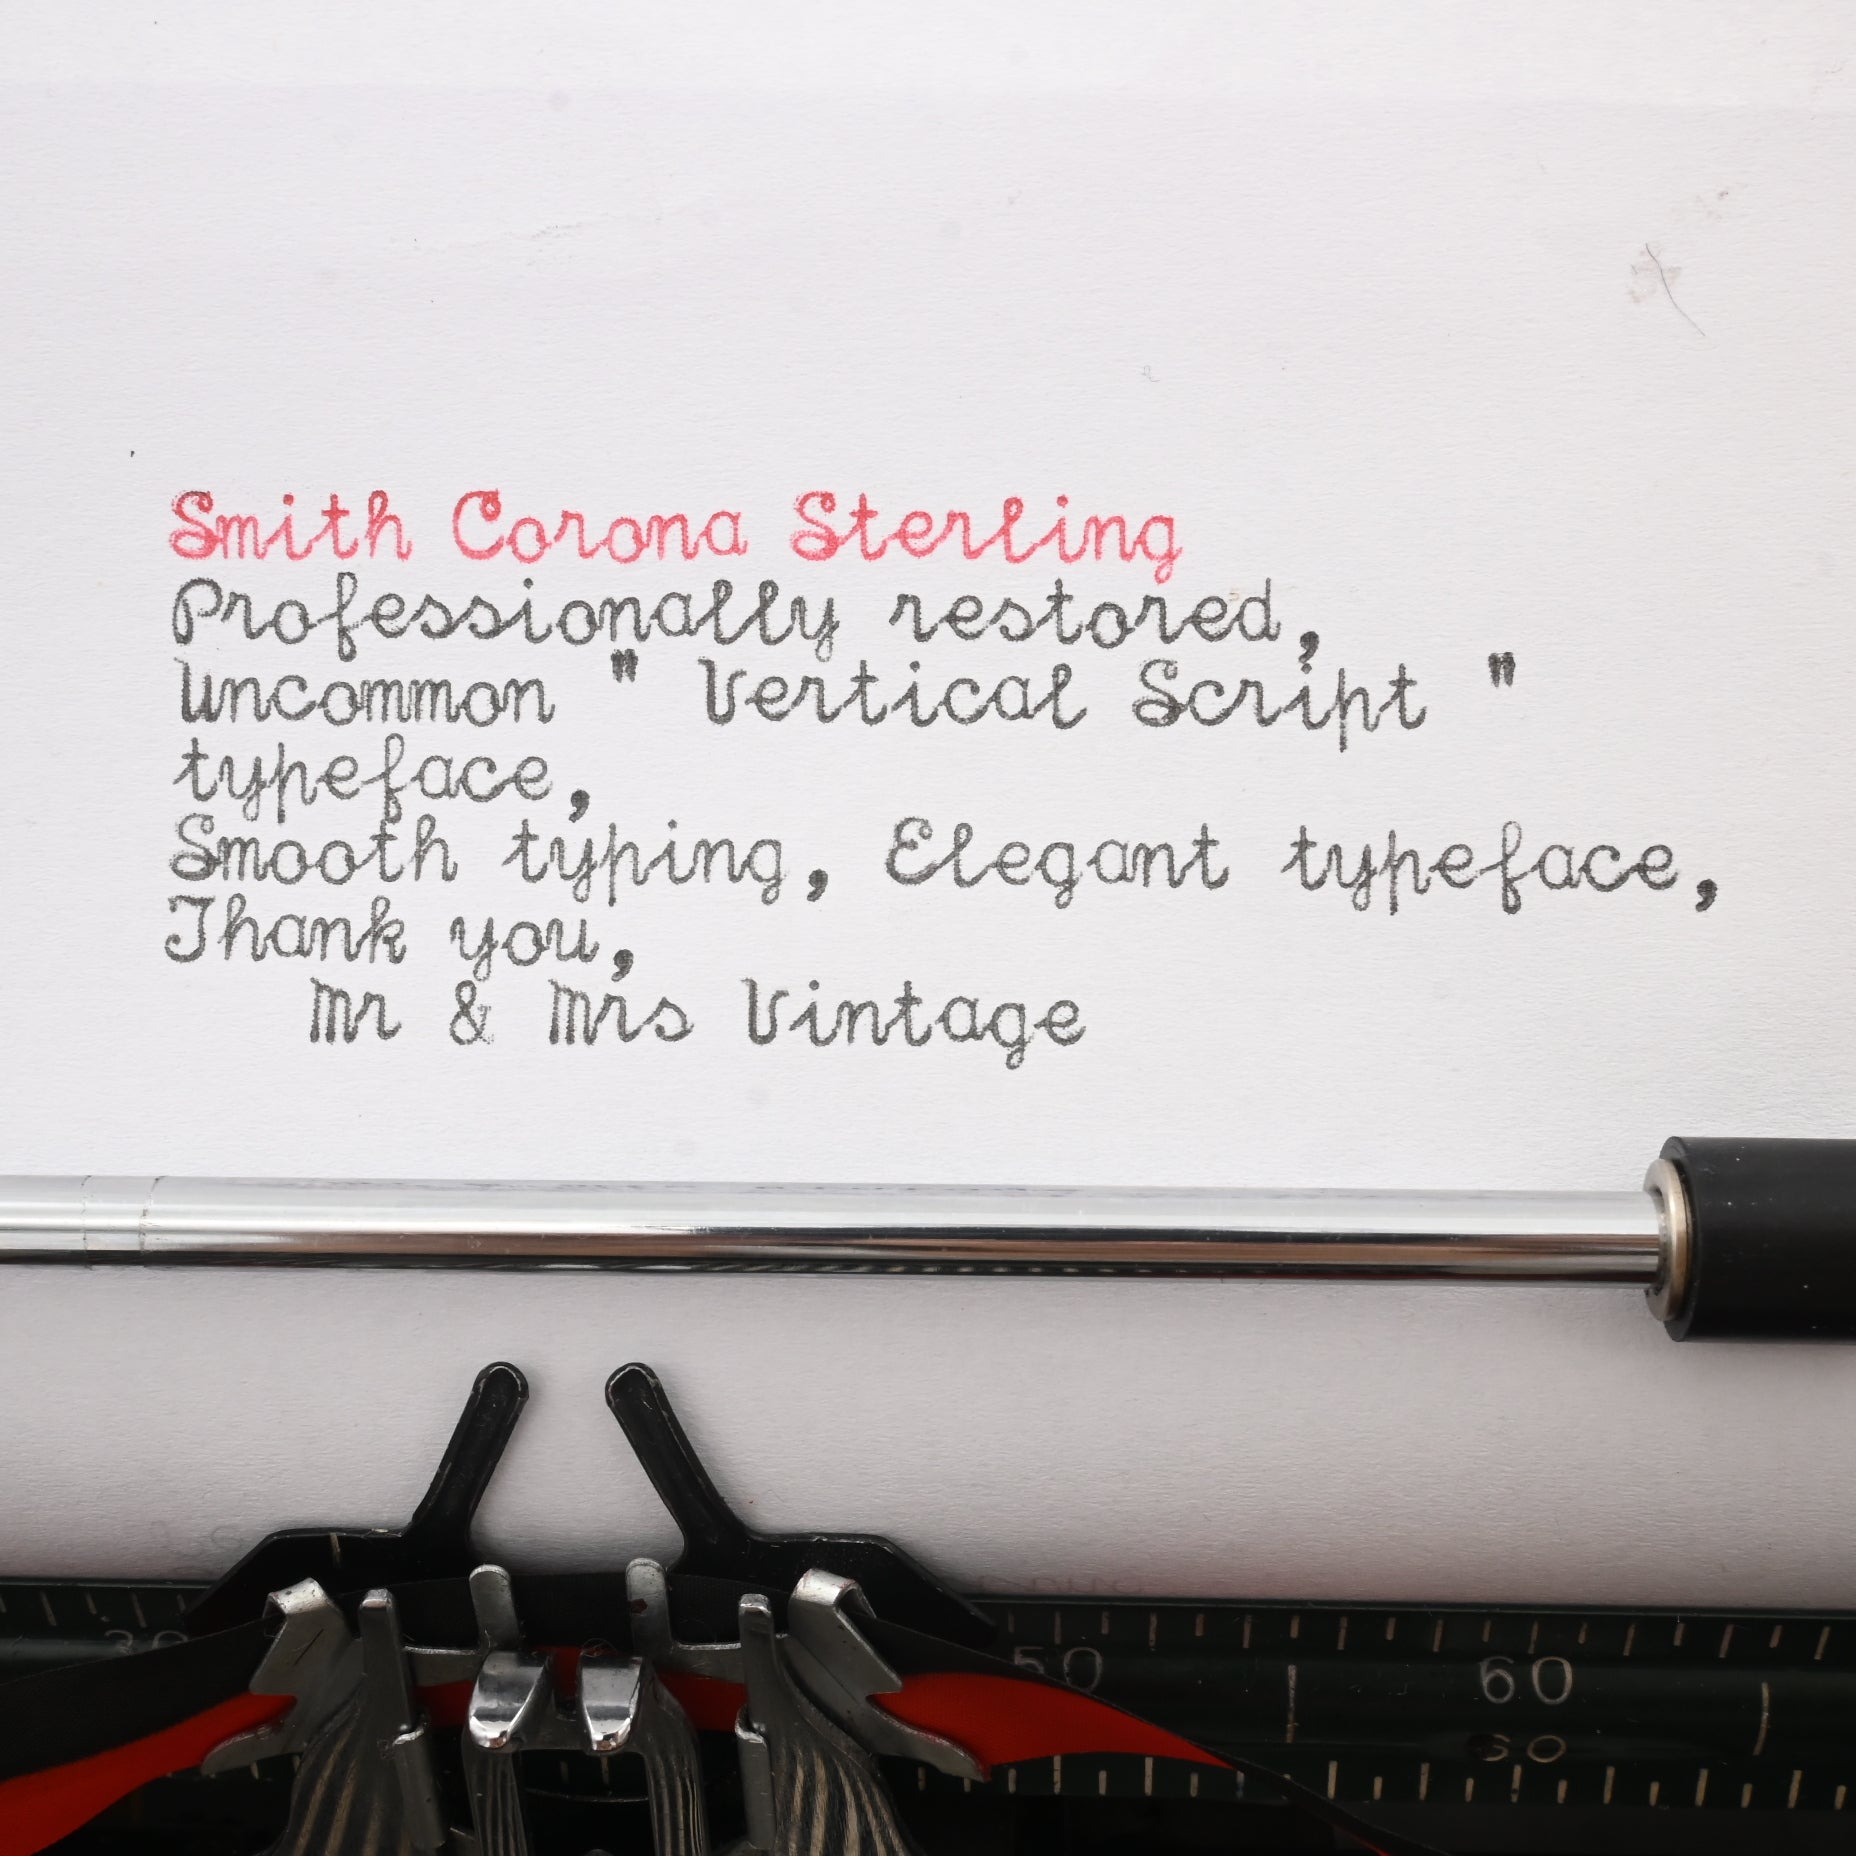 Smith Corona Sterling
Professionally restored,
Uncommon " Vertical Script "
typeface,
Smooth typing, Elegant typeface,
Thank you,
Mr & Mrs Vintage
30 50 60
60